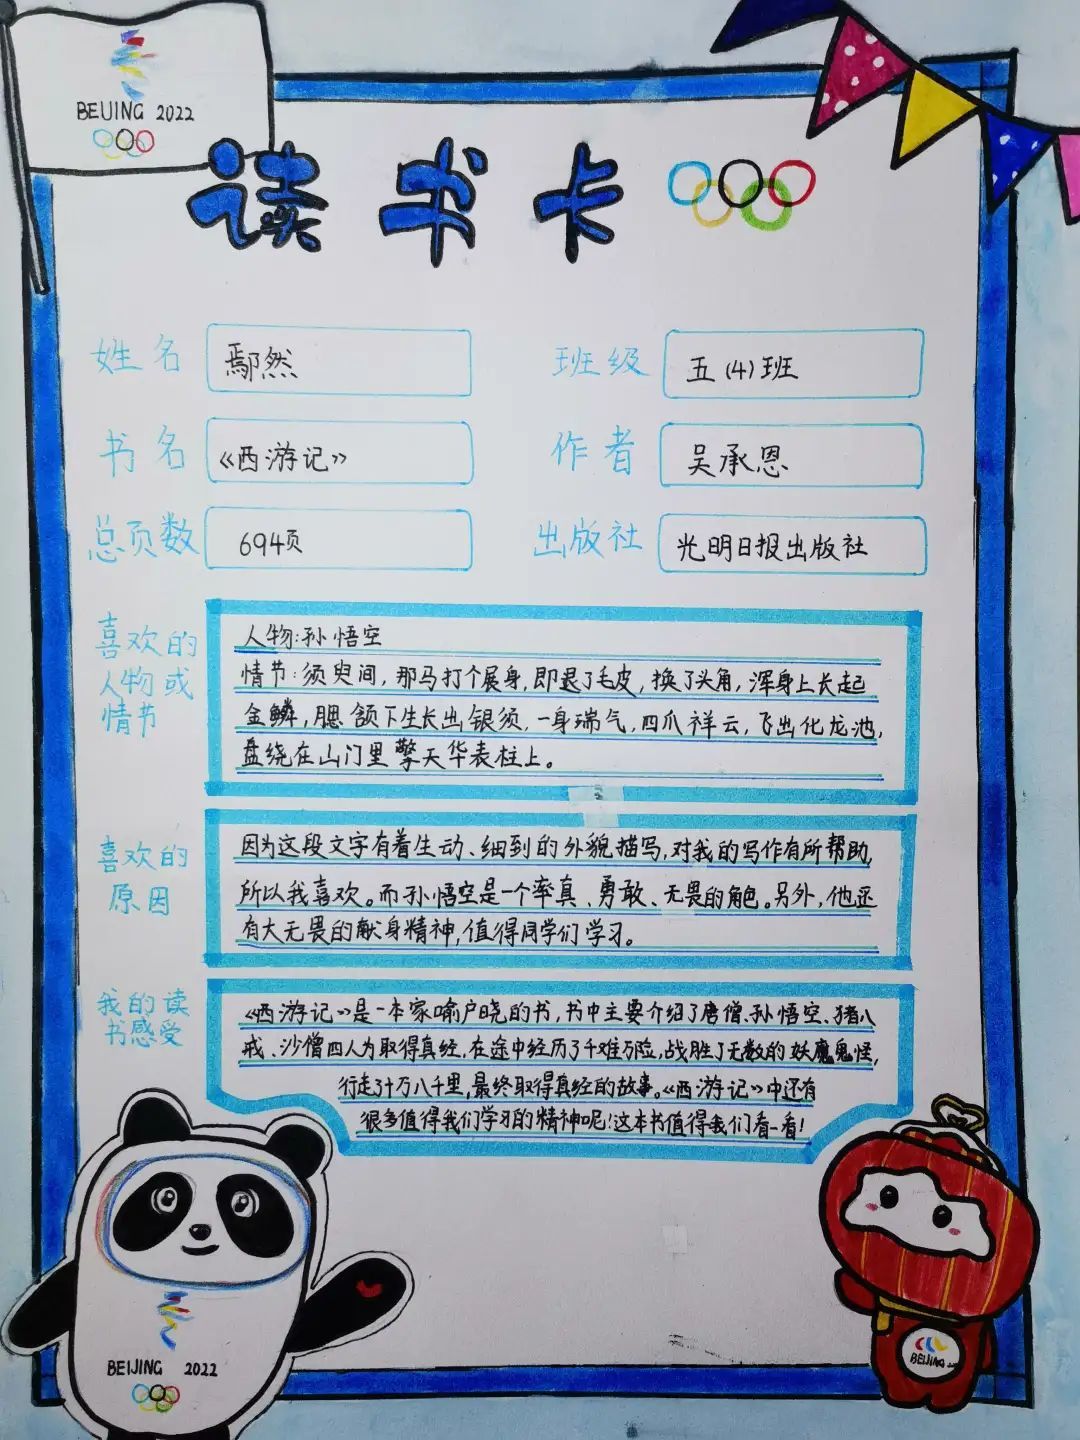 BEIJING 2022
读书卡
姓名 鄢然
班级 五(4)班
书名 《西游记》
作者 吴承恩
总页数 694页
出版社 光明日报出版社
喜欢的
人物或
情节
人物:孙悟空
情节:须臾间,那马打个展身,即退了毛皮,换了头角,浑身上长起
金鳞,腮颔下生长出银须,一身瑞气,四爪祥云,飞出化龙池,
盘绕在山门里擎天华表柱上。
喜欢的
原因
因为这段文字有着生动、细到的外貌描写,对我的写作有所帮助,
所以我喜欢。而孙悟空是一个率真、勇敢、无畏的角色。另外,他还
有大无畏的献身精神,值得同学们学习。
我的读
书感受
《西游记》是一本家喻户晓的书,书中主要介绍了唐僧、孙悟空、猪八
戒、沙僧四人为取得真经,在途中经历了千难万险,战胜了无数的妖魔鬼怪,
行走了十万八千里,最终取得真经的故事。《西游记》中还有
很多值得我们学习的精神呢!这本书值得我们看一看!
BEIJING 2022
BEIJING